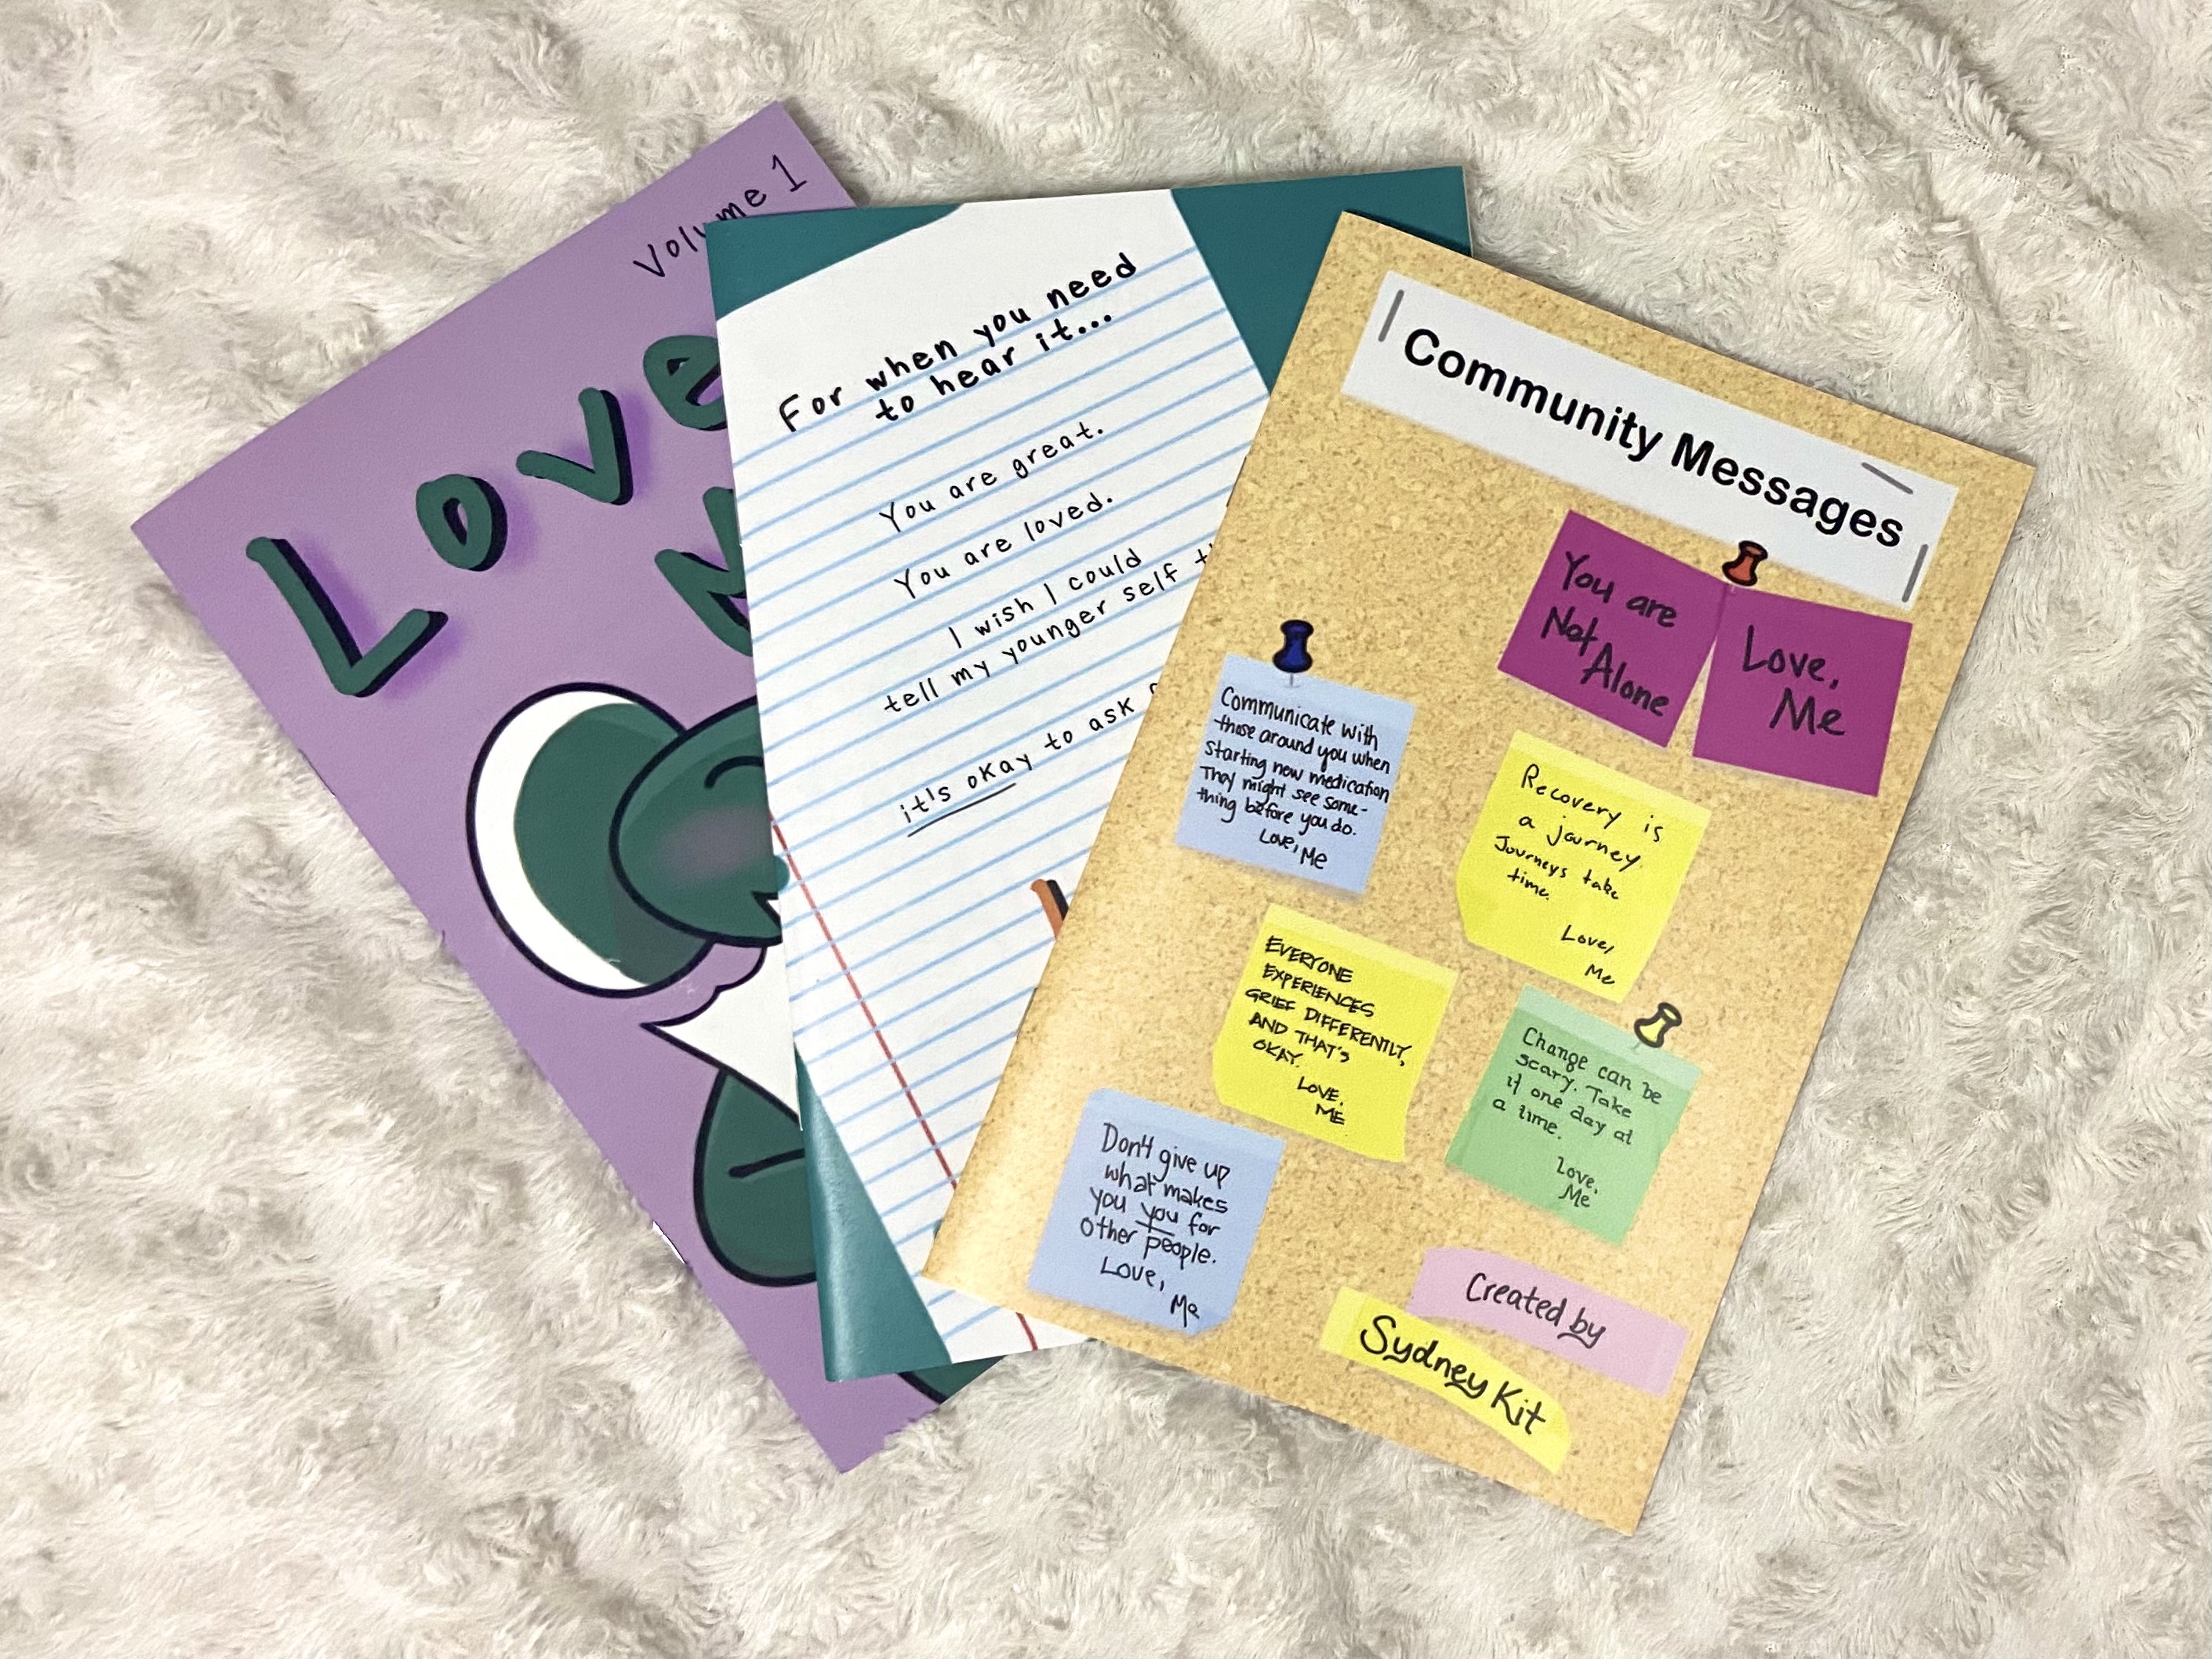 Volume 1
Love
For when you need
to hear it...
You are great.
You are loved.
I wish I could
tell my younger self
it's okay to ask
Community Messages
You are
Not
Alone
Love,
Me
Communicate with
those around you when
starting new medication
They might see some-
thing before you do.
Love, Me
Recovery is
a journey.
Journeys take
time.
Love,
Me
EVERYONE
EXPERIENCES
GRIEF DIFFERENTLY,
AND THAT'S
OKAY.
LOVE,
ME
Change can be
scary. Take
it one day at
a time.
Love,
Me
Don't give up
what makes
you you for
other people.
Love,
Me
Created by
Sydney Kit